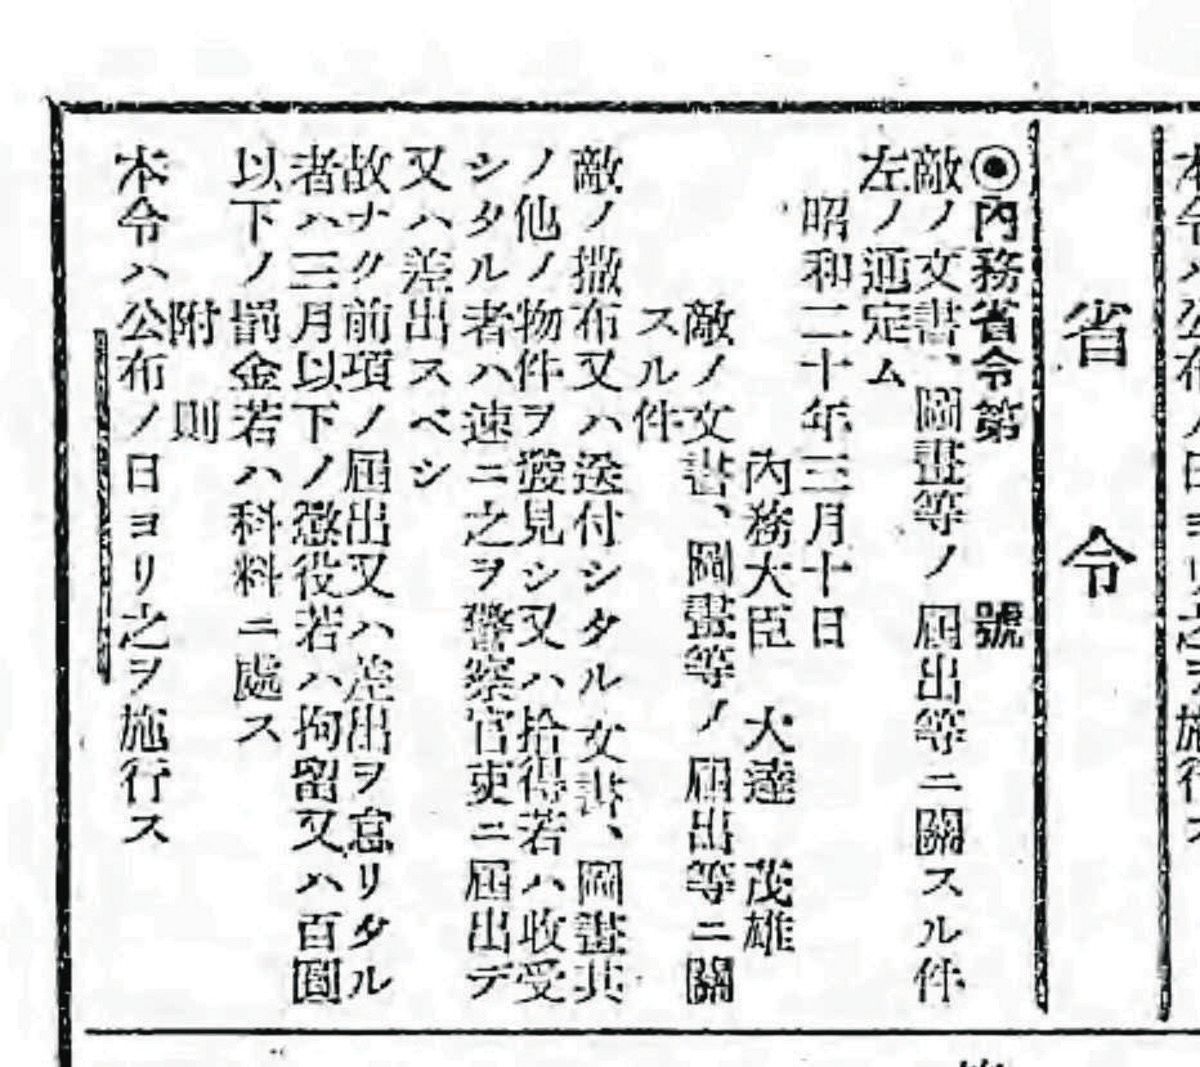 省令
◉內務省令第　　　號
敵ノ文書、圖畫等ノ屆出等ニ關スル件
左ノ通定ム
昭和二十年三月十日
內務大臣　大達　茂雄
敵ノ文書、圖畫等ノ屆出等ニ關
スル件
敵ノ撒布又ハ送付シタル文書、圖畫其
ノ他ノ物件ヲ發見シ又ハ拾得若ハ收受
シタル者ハ速ニ之ヲ警察官吏ニ屆出デ
又ハ差出スベシ
故ナク前項ノ屆出又ハ差出ヲ怠リタル
者ハ三月以下ノ懲役若ハ拘留又ハ百圓
以下ノ罰金若ハ科料ニ處ス
附則
本令ハ公布ノ日ヨリ之ヲ施行ス